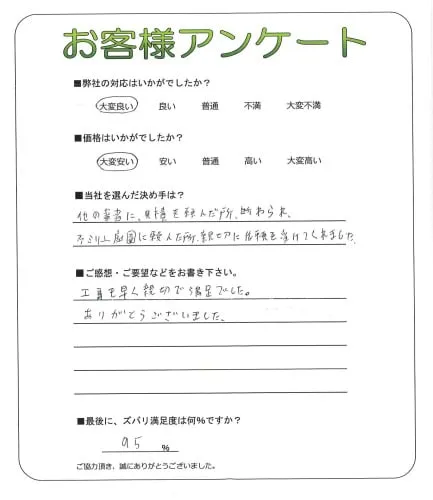 お客様アンケート
■弊社の対応はいかがでしたか?
大変良い 良い 普通 不満 大変不満
■価格はいかがでしたか?
大変安い 安い 普通 高い 大変高い
■当社を選んだ決め手は?
他の業者に、見積を頼んだ所、断わられ、
に頼んだ所、親切に依頼を受けてくれました
■ご感想・ご要望などをお書き下さい。
工事も早く親切で満足でした。
ありがとうございました。
■最後に、ズバリ満足度は何%ですか?
95 %
ご協力頂き、誠にありがとうございました。